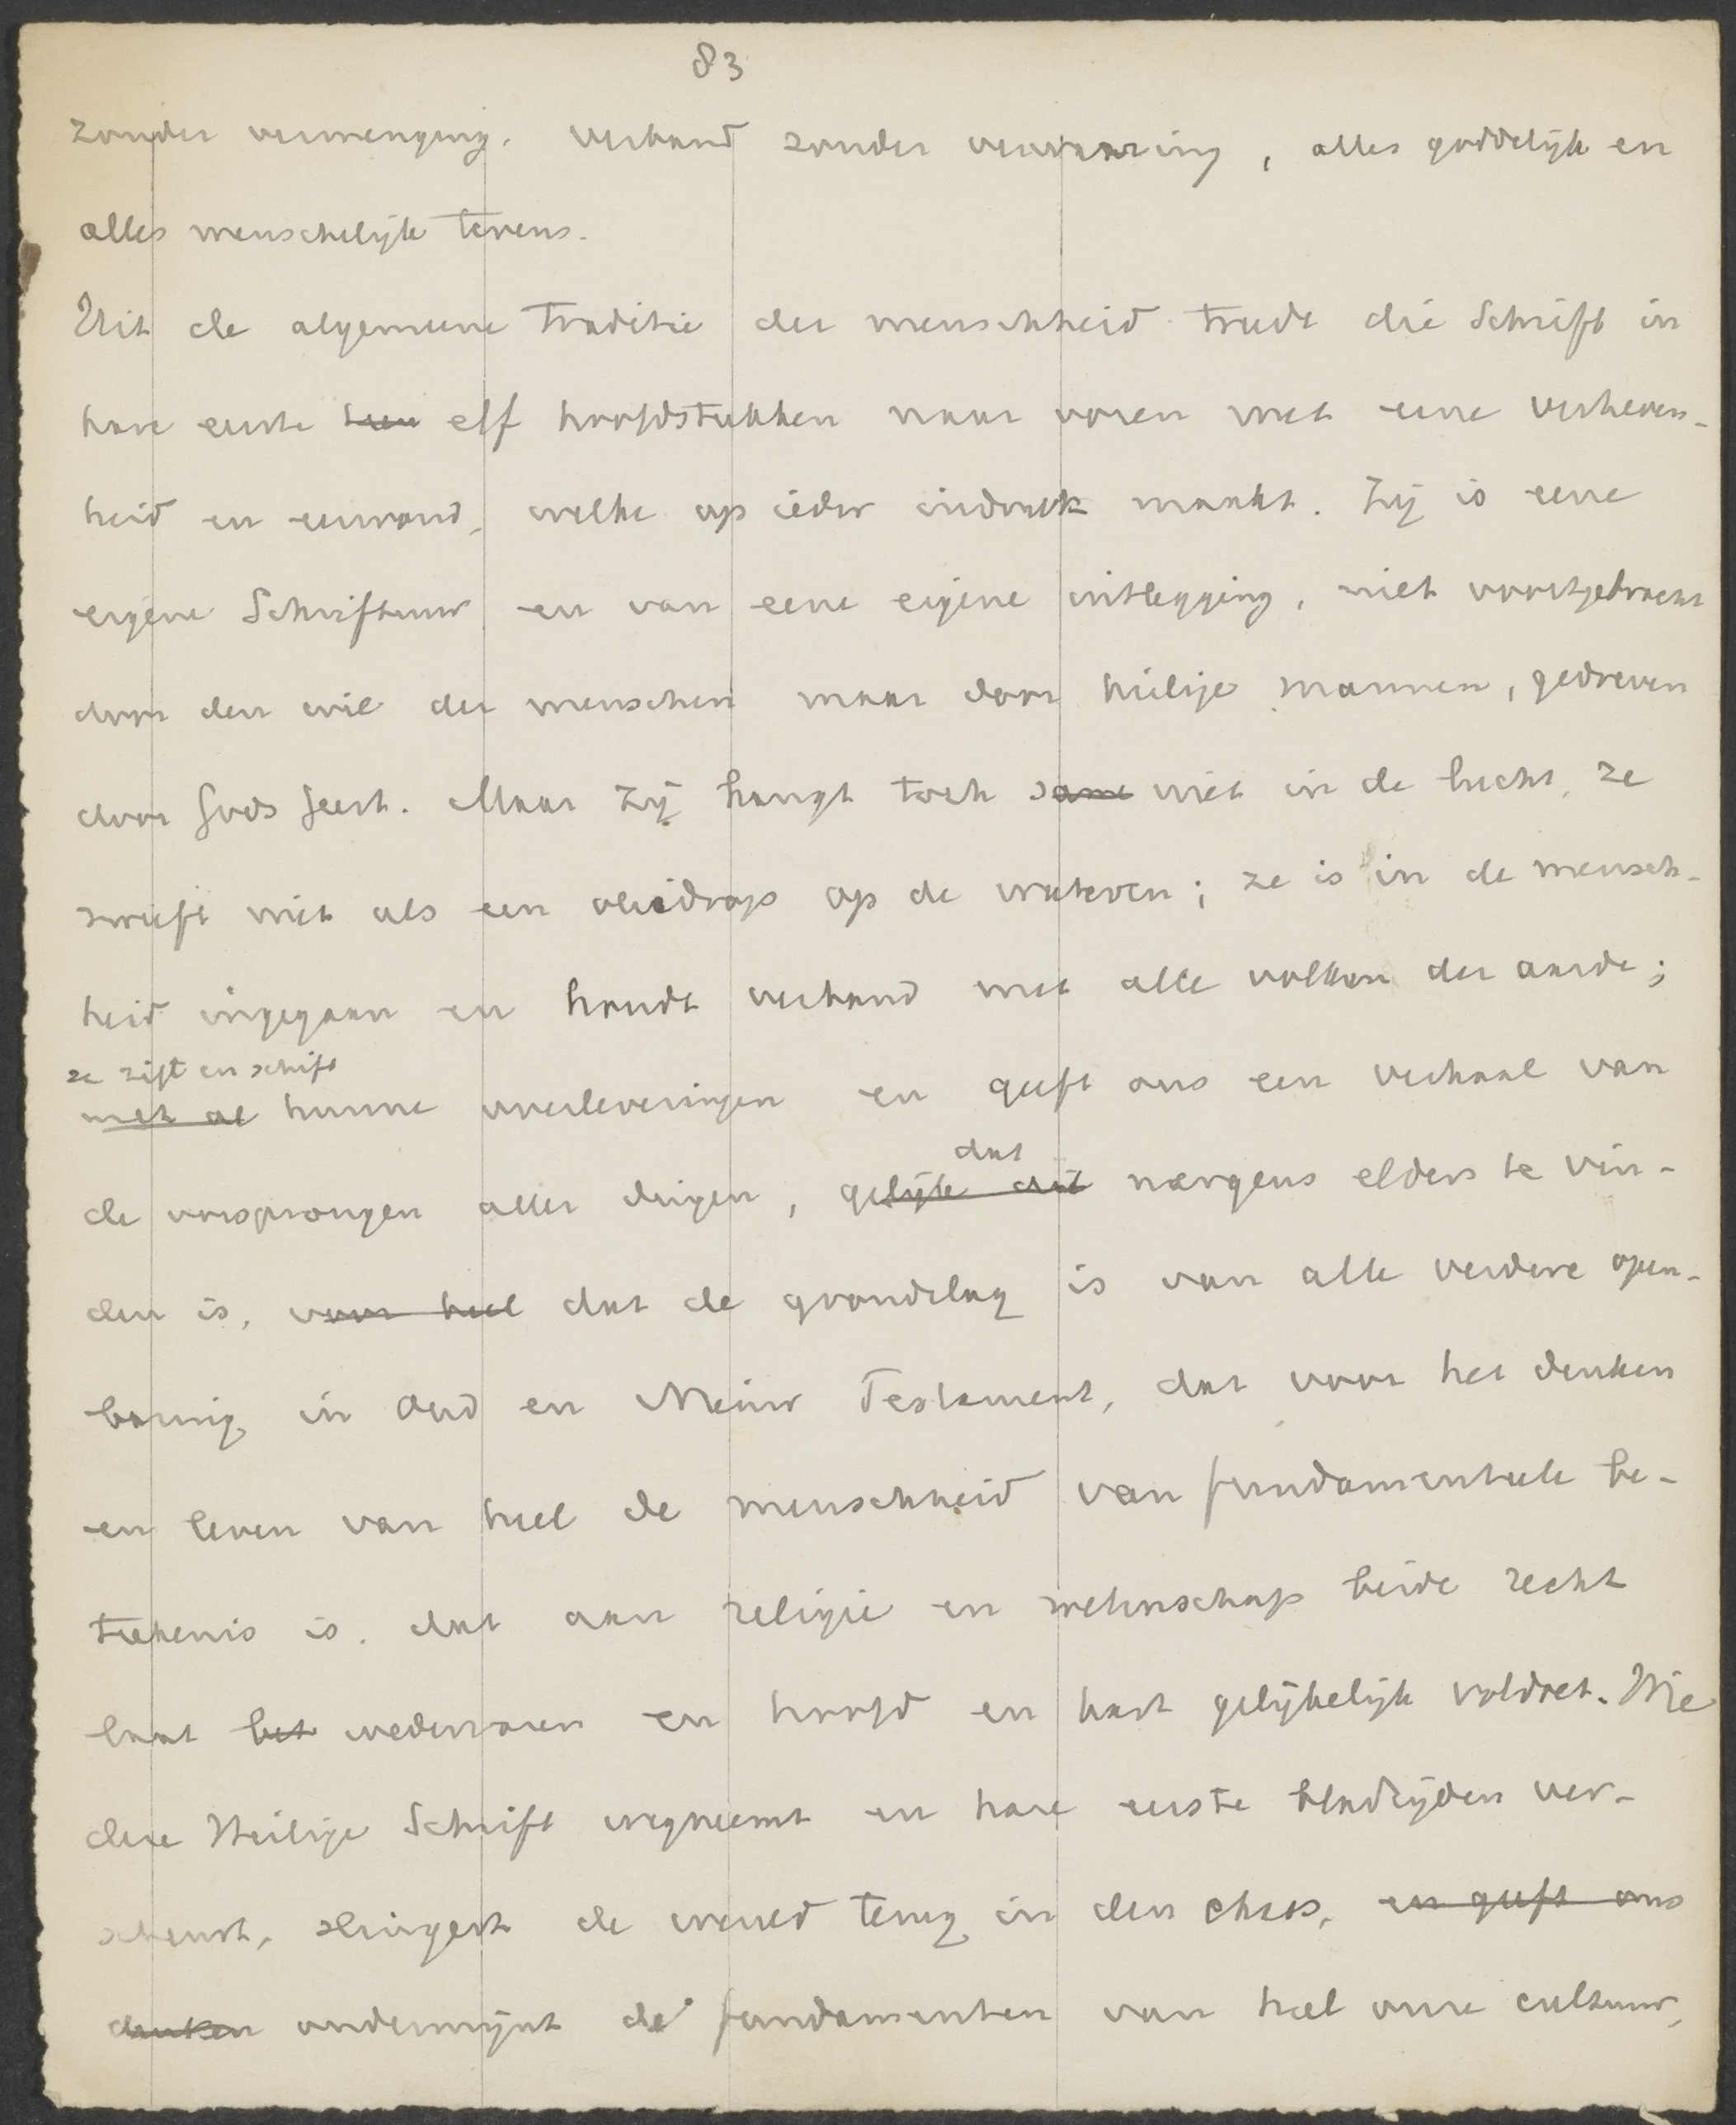 83
zonder vermenging, verband zonder verwarring, alles goddelijk en
alles menschelijk tevens.
Uit de algemeene traditie der menschheid treedt die Schrift in
hare eerste elf hoofdstukken naar voren met eene verheven-
heid en eenvoud, welke op ieder indruk maakt. Zij is eene
eigene Schriftuur en van eene eigene uitlegging, niet voortgebracht
door den wil der menschen maar door heilige mannen, gedreven
door Gods Geest. Maar zij hangt toch niet in de lucht, ze
zweeft niet als een oliedrop op de wateren; ze is in de mensch-
heid ingegaan en houdt verband met alle volken der aarde;
ze zift en schift
met al hunne overleveringen en geeft ons een verhaal van
dat
de oorsprongen aller dingen, gelijk dit nergens elders te vin-
den is, voor heel dat de grondslag is van alle verdere open-
baring in Oud en Nieuw Testament, dat voor het denken
en leven van heel de menschheid van fundamenteele be-
teekenis is, dat aan religie en wetenschap beide recht
laat het wedervaren en hoofd en hart gelijkelijk voldoet. Wie
deze Heilige Schrift wegneemt en hare eerste bladzijden ver-
scheurt, slingert de wereld terug in den chaos, en geeft ons
denken ondermijnt de fundamenten van heel onze cultuur,